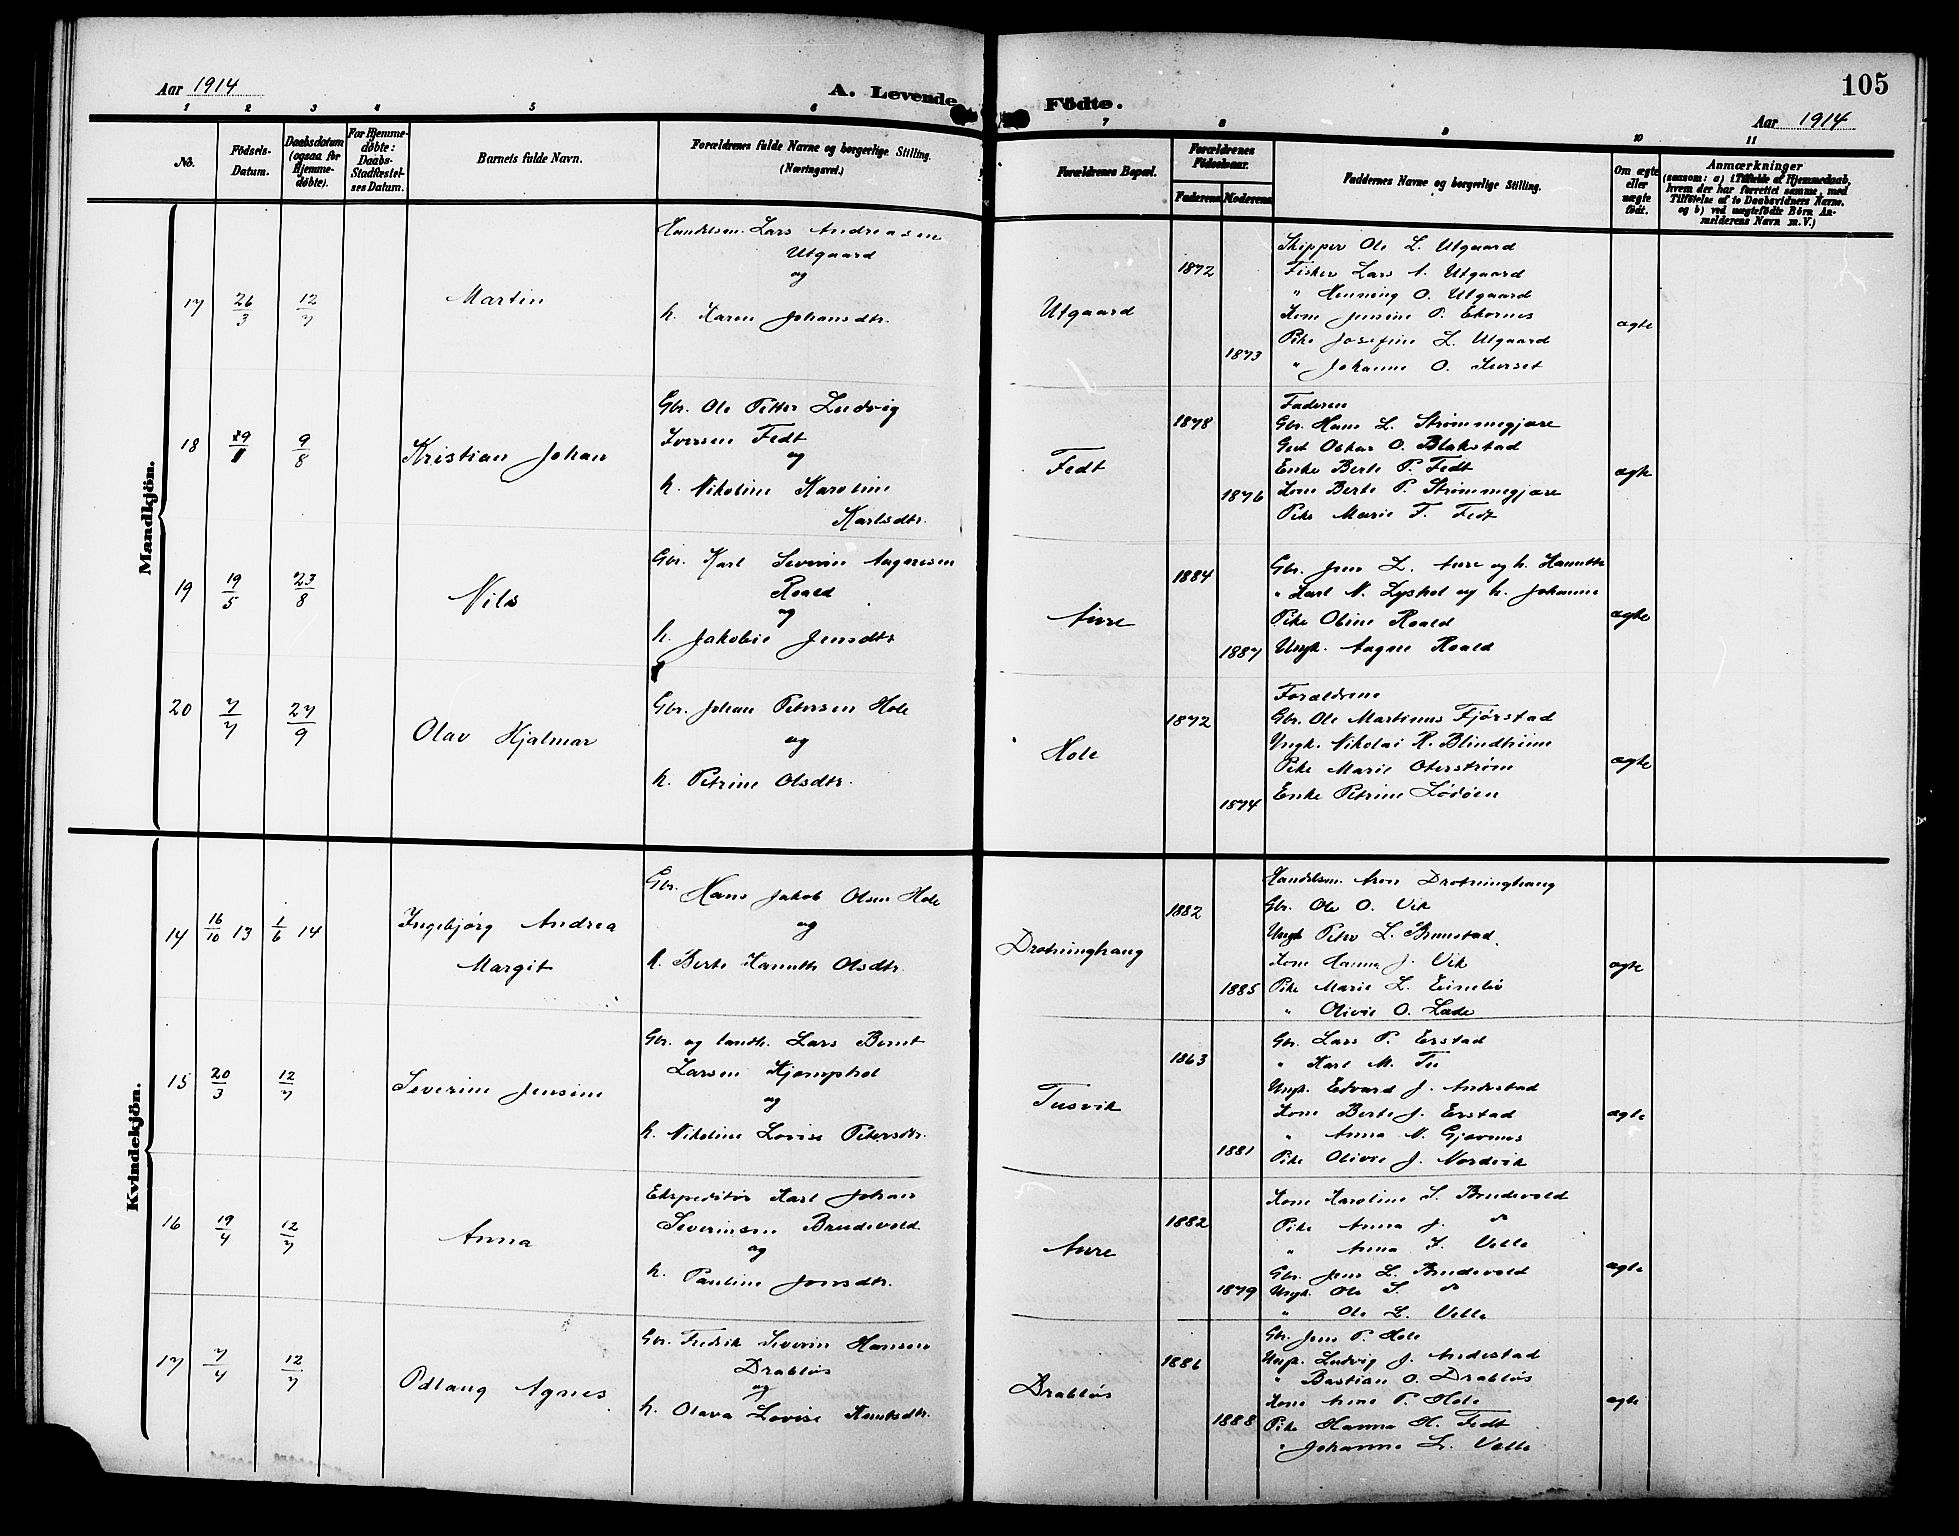 Aar 1914
A. Levende
1 2 3 4 5 6
No.
Födsels-Datum.
Daabsdatum (ogsaa for Hjemme-døbte).
For Hjemme-døbte: Daabs-Stadfæstel-ses Datum.
Barnets fulde Navn.
Forældrenes fulde Navne og borgerlige Stilling. (Næringsvei.)
Mandkjön.
17 26/3 12/7 Martin
Handelsm. Lars Andreasen
Utgaard
og
h. Karen Johansdtr.
18 29/1 9/8 Kristian Johan
Gbr. Ole Petter Ludvig
Iversen Fedt
og
h. Nikoline Karoline
Karlsdtr.
19 19/5 23/8 Nils
Gbr. Karl Severin Aagnesen
Roald
og
h. Jakobie Jensdtr
20 7/7 27/9 Olav Hjalmar
Gbr. Johan Petersen Hole
og
h. Petrine Olsdtr.
Kvindekjön.
14 16/10 13 1/6 14 Ingebjørg Andrea
Margit
Gbr. Hans Jakob Olsen Hole
og
h. Berte Hanette Olsdtr.
15 20/3 12/7 Severine Jensine
Gbr. og landh. Lars Bernt
Larsen
og
h. Nikoline Lovise Petersdtr.
16 19/4 12/7 Anna
Ekspeditør Karl Johan
Severinsen Brudevold
og
h. Pauline Jonsdtr.
17 7/4 12/7 Odlaug Agnes
Gbr. Fredrik Severin Hansen
Drabløs
og
h. Olava Lovise Knutsdtr.
105
Födte.
Aar 1914
7 8 9 10 11
Forældrenes Bopæl.
Forældrenes Födselsaar.
Faderens Moderens
Faddernes Navne og borgerlige Stilling.
Om ægte eller uægte födt.
Anmærkninger
(saasom: a) i Tilfælde af Hjemmedaab,
hvem der har forrettet samme, med
Tilföielse af to Daabsvidners Navne,
og b) ved uægtefödte Börn An-
melderens Navn m. V.)
Utgaard 1872 1873 ægte
Skipper Ole L. Utgaard
Fisker Lars A. Utgaard
" Henning O. Utgaard
Kone Jensine P. Ekornes
Pike Josefine L. Utgaard
" Johanne O. Kurset
Fedt 1878 1876 ægte
Faderen
Gbr. Hans L. Strømmegjære
Gut Oskar O. Blakstad
Enke Berte P. Fedt
Kone Berte P. Strømmegjære
Pike Marie F. Fedt
Aure 1884 1887 ægte
Gbr. Jens L. Aure og h. Hanette
" Karl N. Lyshol og h. Johanne
Pike Oline Roald
Ungk. Aagne Roald
Hole 1872 1874 ægte
Forældrene
Gbr. Ole Martinus Fjørstad
Ungk. Nikolai R. Blindheim
Pike Marie Oterstrøm
Enke Petrine Lødøen
Drotninghaug 1882 1885 ægte
Handelsm. Aron Drotninghaug
Gbr. Ole O. Vik
Ungk Peter L. Brunstad
Kone Hanna J. Vik
Pike Marie L. Eimebø
" Olivie O. Lade
Tusvik 1863 1881 ægte
Gbr. Lars P. Erstad
" Karl M. Tu
Ungk. Edvard J. Andestad
Kone Berte J. Erstad
" Anna N. Gjævenes
Pike Olivie J. Nordvik
Aure 1882 1879 ægte
Kone Karoline S. Brudevold
Pike Anna J. do
" Anna S. Velle
Gbr. Jens L. Brudevold
Ungk. Ole S. do
" Ole L. Velle
Drabløs 1886 1888 ægte
Gbr. Jens P. Hole
Ungk. Ludvig J. Andestad
" Bastian O. Drabløs
Kone Anne P. Hole
Pike Hanna H. Fedt
" Johanne L. Velle